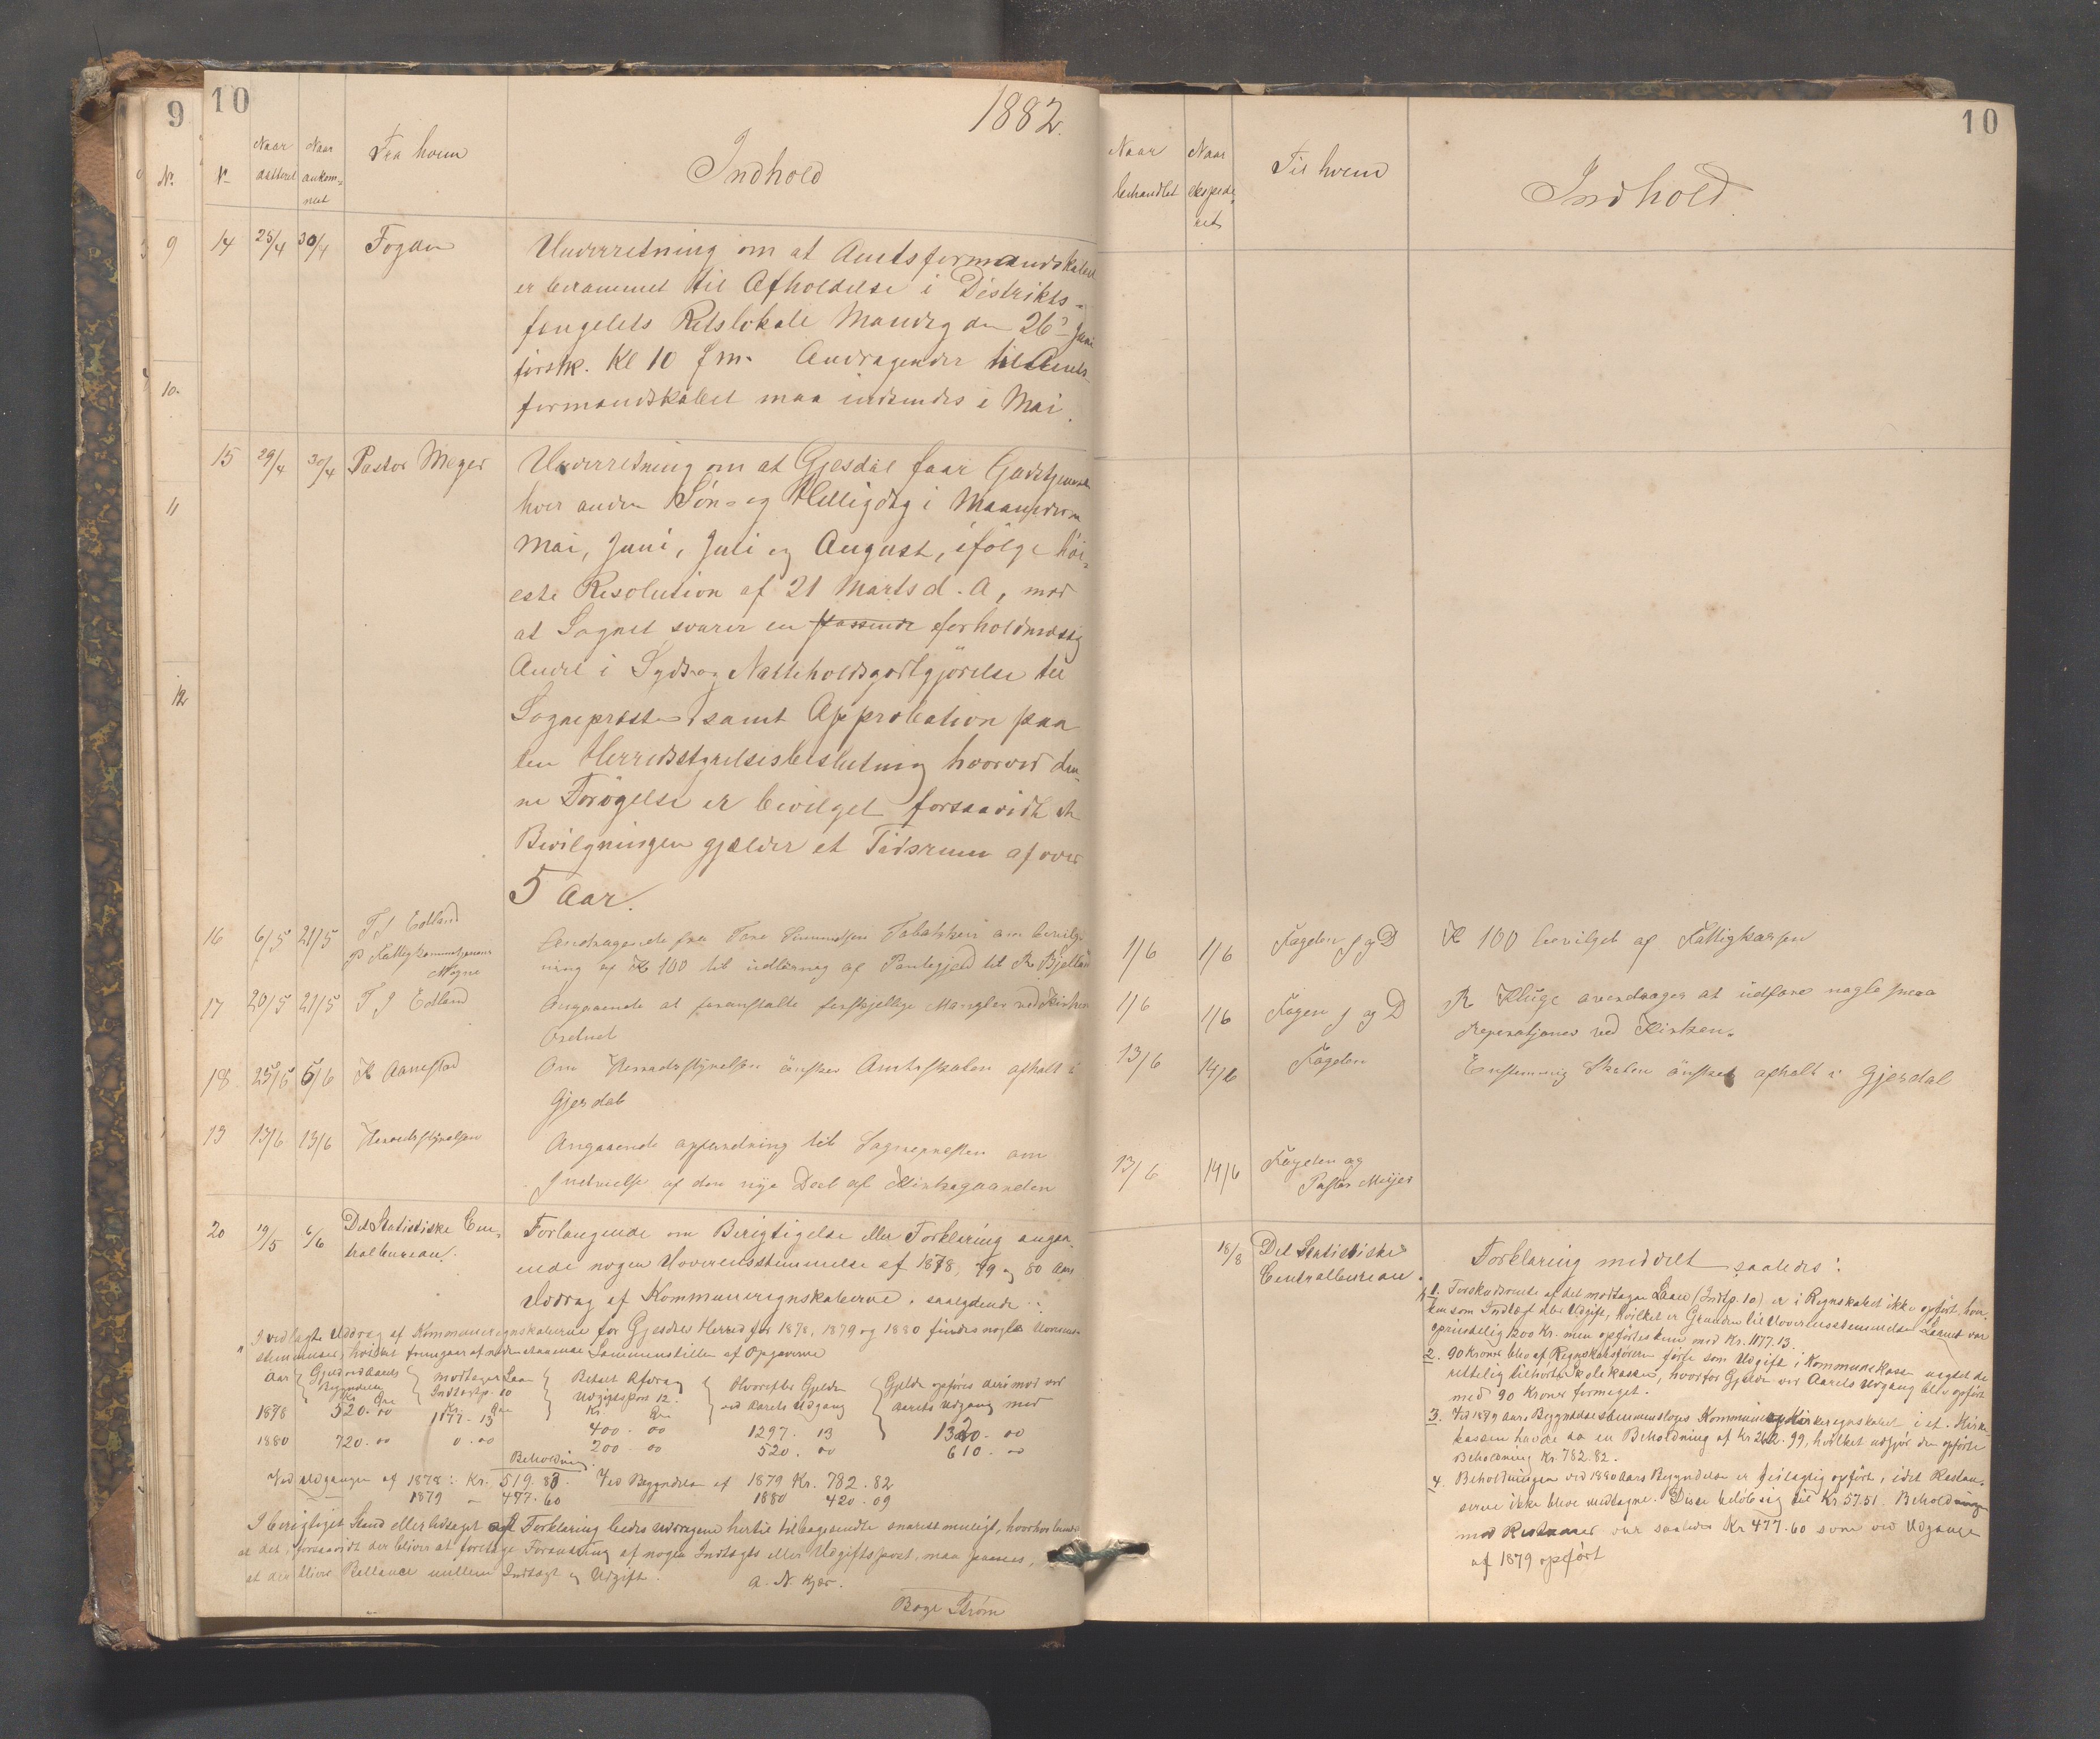 9
No.
9
10.
11
12
10
1882.
No
Naar dateret
Naar ankom-met
Fra hvem
Indhold
14 25/4 30/4 Fogden
Underretning om at Amtsformandskabet
er berammet til Afholdelse i Distrikts-
fengslets Retslokale Mandag den 26de Juni
førstk. Kl 10 fm. Andragender til Amts-
formandskabet maa indsendes i Mai.
15 29/4 30/4 Pastor Meyer
Underretning om at Gjesdal faar Gudstjeneste
hver anden Søn- og Helligdag i Maanederne
Mai, Juni, Juli og August, ifølge høi-
este Resolution af 21 Marts d. A, mod
at Sognet svarer en passende forholdmæssig
Andel i Skyds og Natteholdsgodtgjörelse til
Sognepræsten, samt Approbation paa
den Herredsstyrelsesbeslutning hvorved den-
ne Forögelse er bevilget forsaavidt
Bevilgningen gjælder et Tidsrum af over
5 Aar.
16 6/5 21/5 T J Edland
P Fattigkommisjonens
Vegne
Andragende fra Tore Simmelsen Tabakken om bevilg-
ning af Kr 100 til udløsning af Pantegjeld til R Bjelland
17 20/5 21/5 T J Edland
Angaaende at foranstalte forskjellige Mangler ved Kirken
Ordnet
18 25/5 5/6 K Aanestad
Om Herredsstyrelsen önsker Amtsskatten afholt i
Gjesdal
19 13/6 13/6 Herredsstyrelsen
Angaaende opfordring til Sognepresten om
Indvielse af den nye Deel af Kirkegaarden
20 19/5 6/6 Det Statistiske Cen-
tralbureau.
Forlangende om Berigtigelse eller Forklaring angaa-
ende nogen Uoverensstemmelse af 1878, 79 og 80 Aars
Uddrag af Kommuneregnskaberne, saalydende:
"I vedlagte Uddrag af Kommuneregnskaberne for Gjesdals Herred for 1878, 1879 og 1880 findes nogle Uoverens-
stemmelser, hvilket fremgaar af nedenstaaende Sammenstillen af Opgaverne
Aar Gjeld ved Aarets Begyndelse Kr Øre
modtaget Laan Indtægtsp. 10 Kr. Øre
Betalt Afdrag Udgiftspost 12. Kr Øre
Hvorefter Gjelden ved Aarets Udgang
Gjelden opføres derimod ved Aarets Udgang med
1878 520.00 1177.13 400.00 1297.13 1320.00
1880 720.00 0.00 200.00 520.00 610.00
Beholdning.
Ved Udgangen af 1878: Kr. 519.83. Ved Begyndelsen af 1879 Kr. 782.82
1879 - 477.60 1880 420.09
I berigtiget Stand eller ledsaget af Forklaring bedes Uddragene hertil tilbagesendte snarest muligt, hvorhos bemærkes
at det, forsaavidt der bliver at foretage Forandring af nogen Indtægts eller Udgiftspost, maa passes,
at der bliver Ballance mellem Indtægt og Udgift.
A. N. Kjær.
Boye Strøm
10
Naar behandlet
Naar eksped-eret
Til hvem
Indhold.
1/6 1/6 Fogden J og D
Kr 100 bevilget af Fattigkassen
1/6 1/6 Fogden J og D
R Kluge overdrages at udføre nogle smaa
Reperatjoner ved Kirken.
13/6 14/6 Fogden
Enstemmig Skatten önsket afholt i Gjesdal
13/6 14/6 Fogden og
Pastor Meijer
18/8 Det Statistiske
Centralbureau.
Forklaring meddelt saaledes:
1. Forskudsrente af det modtagne Laan (Indtp. 10) er i Regnskabet ikke opført, hver-
ken som Indtægt eller Udgift, hvilket er Grunden til Uoverensstemmelsen. Laanet var
oprindelig 1200 Kr. men opførtes kun med Kr. 1177.13
2. 90 Kroner blev af Regnskabsføreren ført som Udgift i Kommunekassen uagtet de
rettelig tilhørte Skolekassen, hvorfor Gjelden ved Aarets Udgang blev opført
med 90 Kroner formeget.
3. Ved 1879 Aars Begyndelse sammensloges Kommune og Kirkeregnskabet i et. Kirke-
kassen havde da en Beholdning af Kr 262.99, hvilket udgjør den opførte
Beholdning Kr. 782.82.
4. Beholdningen ved 1880 Aars Begyndelse er feilagtig opført, idet Restan-
serne ikke bleve medtagne. Disse beløb sig til Kr 57.51. Beholdningen
med Restancer var saaledes Kr 477.60 som ved Udgangen
af 1879 opført